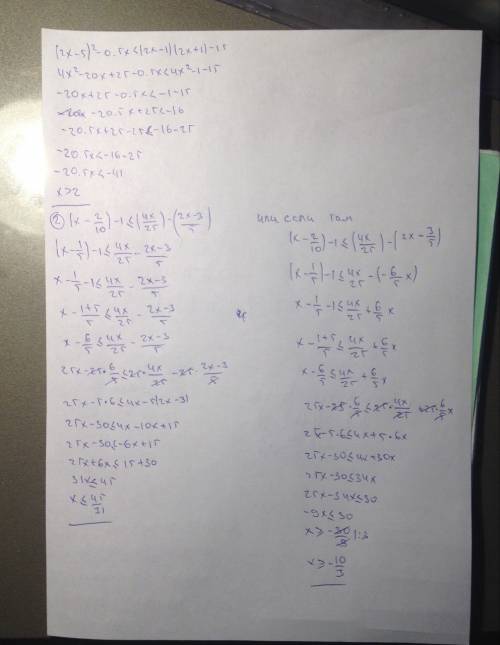 (2x-5)²-0.5x<(2x-1)(2x+1)-15
4x²-20x+25-0.5x<4x²-1-15
-20x+25-0.5x<-1-15
-20.5x+25<-16
-20.5x+25-25<-16-25
-20.5x<-16-25
-20.5x<-41
x>2
② (x-2/10)-1≤(4x/25)-(2x-3/5)
(x-1/5)-1≤4x/25-2x-3/5
x-1/5-1≤4x/25-2x-3/5
x-1+5/5≤4x/25-2x-3/5
x-6/5≤4x/25-2x-3/5
25x-25·6/5≤25·4x/25-25·2x-3/5
25x-5·6≤4x-5(2x-3)
25x-30≤4x-10x+15
25x-30≤-6x+15
25x+6x≤15+30
31x≤45
x≤45/31
или если там
(x-2/10)-1≤(4x/25)-(2x-3/5)
(x-1/5)-1≤4x/25-(-6/5x)
x-1/5-1≤4x/25+6/5x
x-1+5/5≤4x/25+6/5x
x-6/5≤4x/25+6/5x
25x-25·6/5≤25·4x/25+25·6/5x
25x-5·6≤4x+5·6x
25x-30≤4x+30x
25x-30≤34x
25x-34x≤30
-9x≤30
x≥-30/9 |:3
x≥-10/3